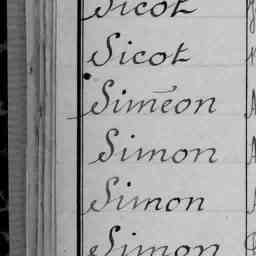 Sicot
Sicot
Siméon
Simon
Simon
Simon